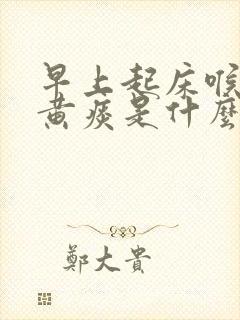 早上起床喉
黄痰是什麼
鄭大貴